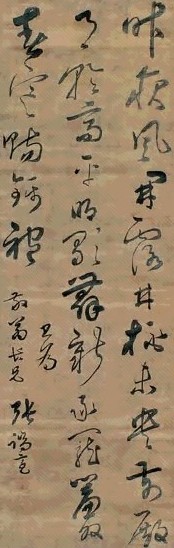 昨夜風開露井桃未央前殿
月輪高平陽歌舞新承寵簾外
春寒賜錦袍
書為
敬翁長兄 張端亮